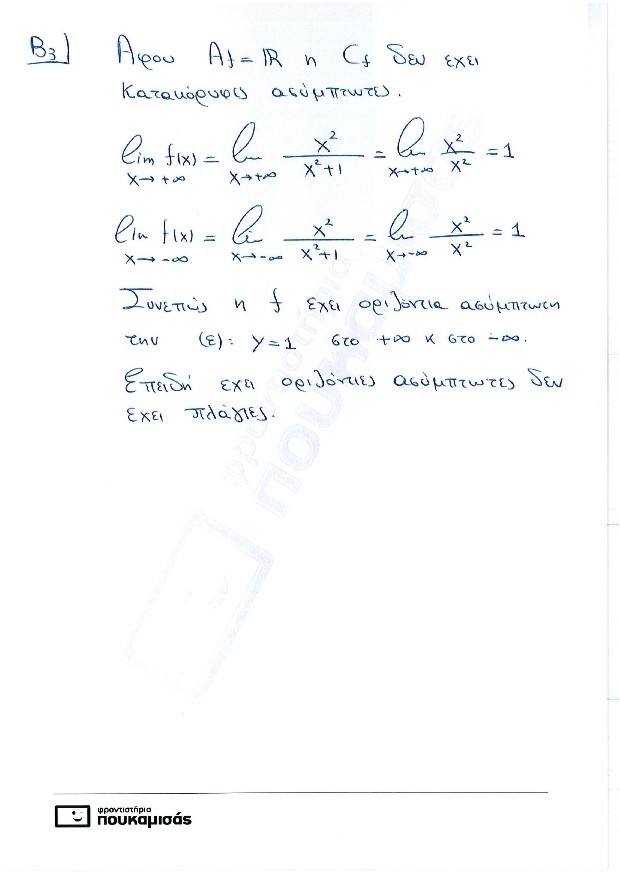 Β3] Αφου Af = ℝ η Cf δεν εχει
κατακόρυφες ασύμπτωτες.
lim x→+∞ f(x) = lim x→+∞ x²/(x²+1) = lim x→+∞ x²/x² = 1
lim x→-∞ f(x) = lim x→-∞ x²/(x²+1) = lim x→-∞ x²/x² = 1
Συνεπώς η f εχει οριζόντια ασύμπτωτη
την (ε): y=1 στο +∞ κ στο -∞.
Επειδή εχει οριζόντιες ασύμπτωτες δεν
εχει πλάγιες.
φροντιστήρια
πουκαμισάς
φροντιστήρια
πουκαμισάς